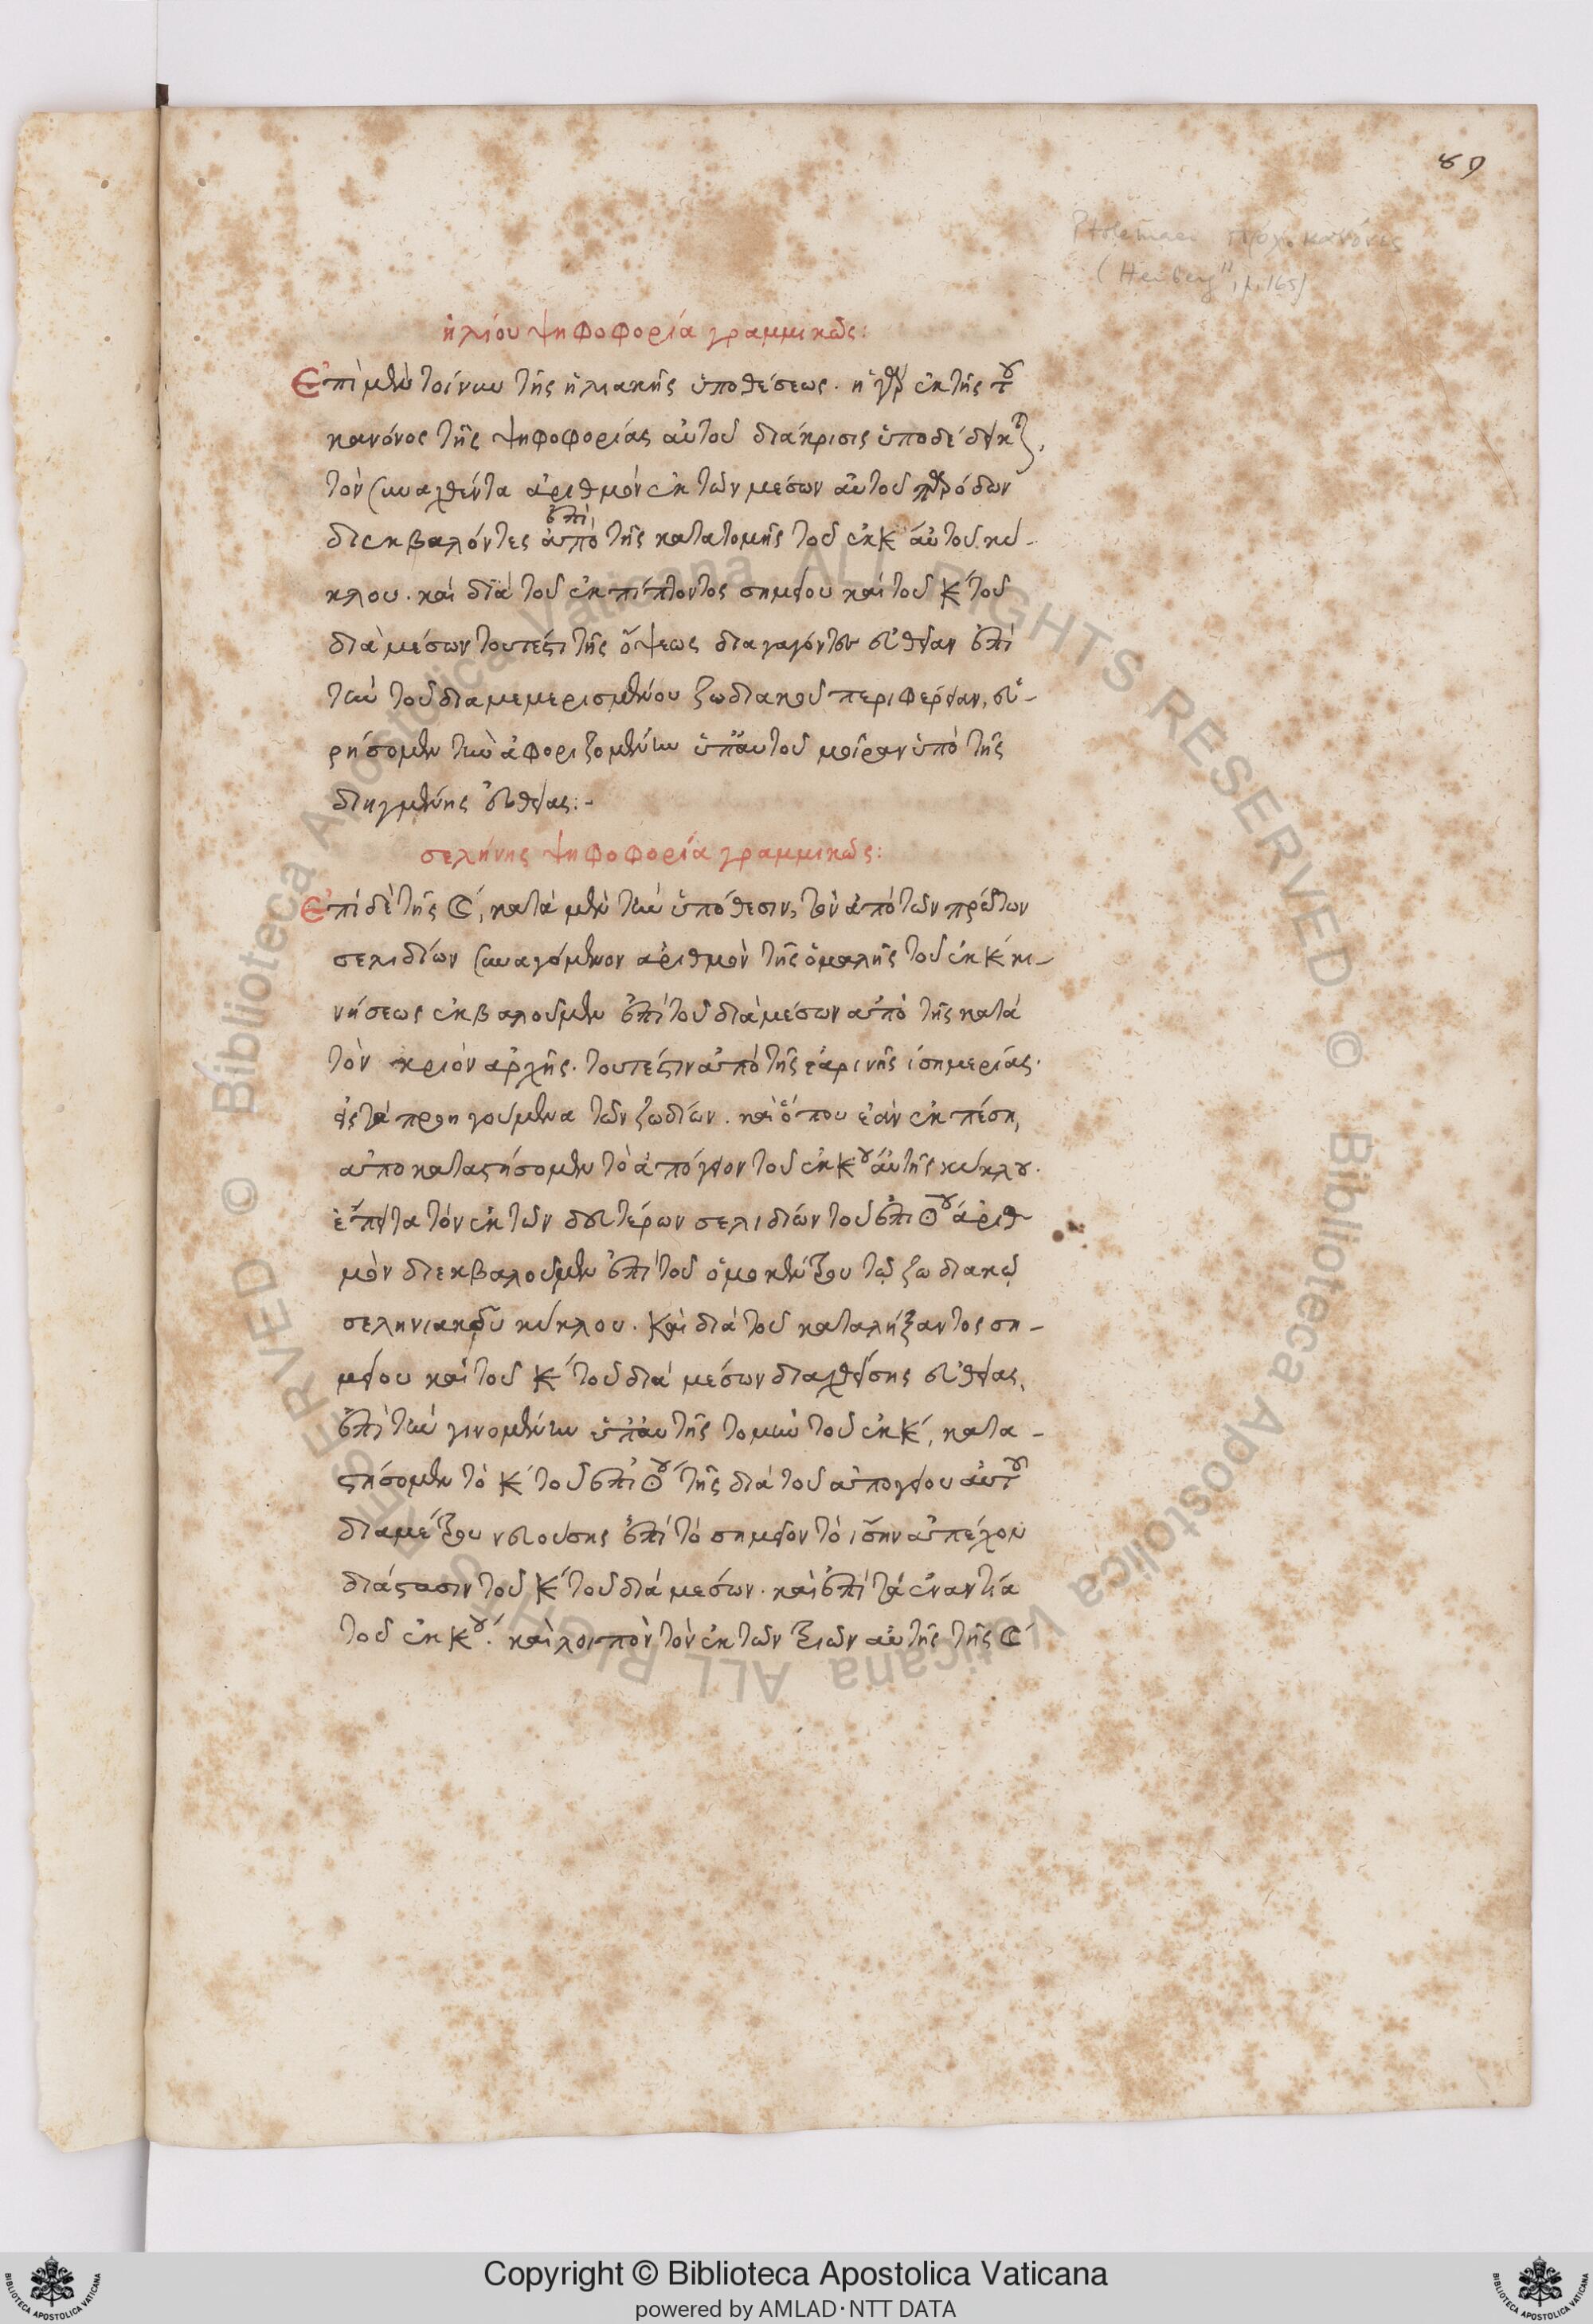 89
Ptolemaei προχ. κανόνες
(Heiberg II, p. 165)
ἡλίου ψηφοφορία γραμμικῶς:
Ἐπὶ μὲν τοίνυν τῆς ἡλιακῆς ὑποθέσεως. ἡ γὰρ ἐκ τῆς τοῦ
κανόνος τῆς ψηφοφορίας αὐτοῦ διάκρισις ὑποδέδεικται,
τὸν συναχθέντα ἀριθμὸν ἐκ τῶν μέσων αὐτοῦ παρόδων
διεκβαλόντες ἀπὸ τῆς κατατομῆς τοῦ ἐκκ́ αὐτοῦ κύ-
ἐπὶ
κλου. καὶ διὰ τοῦ ἐκπίπτοντος σημείου καὶ τοῦ κ́ τοῦ
διὰ μέσων τουτέστι τῆς ὄψεως διαγαγόντες εὐθεῖαν ἐπὶ
τὴν τοῦ διαμεμερισμένου ζωδιακοῦ περιφέρειαν, εὑ-
ρήσομεν τὴν ἀφοριζομένην ὑπ' αὐτοῦ μοῖραν ὑπὸ τῆς
διηγμένης εὐθείας:-
σελήνης ψηφοφορία γραμμικῶς:
Ἐπὶ δὲ τῆς ☾, κατὰ μὲν τὴν ὑπόθεσιν, τὸν ἀπὸ τῶν πρώτων
σελιδίων συναγόμενον ἀριθμὸν τῆς ὁμαλῆς τοῦ ἐκκ́ κι-
νήσεως ἐκβαλοῦμεν ἐπὶ τοῦ διὰ μέσων ἀπὸ τῆς κατὰ
τὸν κριὸν ἀρχῆς. τουτέστιν ἀπὸ τῆς ἐαρινῆς ἰσημερίας.
εἰς τὰ προηγούμενα τῶν ζωδίων. καὶ ὅπου ἐὰν ἐκπέσῃ,
ἀποκαταστήσομεν τὸ ἀπόγειον τοῦ ἐκκου αὐτῆς κύκλου.
ἔπειτα τὸν ἐκ τῶν δευτέρων σελιδίων τοῦ ἐπὶ ☉ου ἀριθ
μὸν διεκβαλοῦμεν ἐπὶ τοῦ ὁμοκέντρου τῷ ζωδιακῷ
σεληνιακοῦ κύκλου. καὶ διὰ τοῦ καταλήξαντος ση-
μείου καὶ τοῦ κ́ τοῦ διὰ μέσων διαχθείσης εὐθείας,
ἐπὶ τὴν γινομένην ὑπ' αὐτῆς τομὴν τοῦ ἐκκ́, κατα-
στήσομεν τὸ κ́ τοῦ ἐπὶ ☉ου τῆς διὰ τοῦ ἀπογείου αὐτοῦ
διαμέτρου νευούσης ἐπὶ τὸ σημεῖον τὸ ἴσην ἀπέχον
διάστασιν τοῦ κ́ τοῦ διὰ μέσων. καὶ ἐπὶ τὰ ἐναντία
τοῦ ἐκκου. καὶ λοιπὸν τὸν ἐκ τῶν τριῶν αὐτῆς τῆς ☾
© Biblioteca Apostolica Vaticana ALL RIGHTS RESERVED © Biblioteca Apostolica Vaticana ALL RIGHTS RESERVED
Copyright © Biblioteca Apostolica Vaticana
powered by AMLAD·NTT DATA
BIBLIOTECA APOSTOLICA VATICANA
BIBLIOTECA APOSTOLICA VATICANA